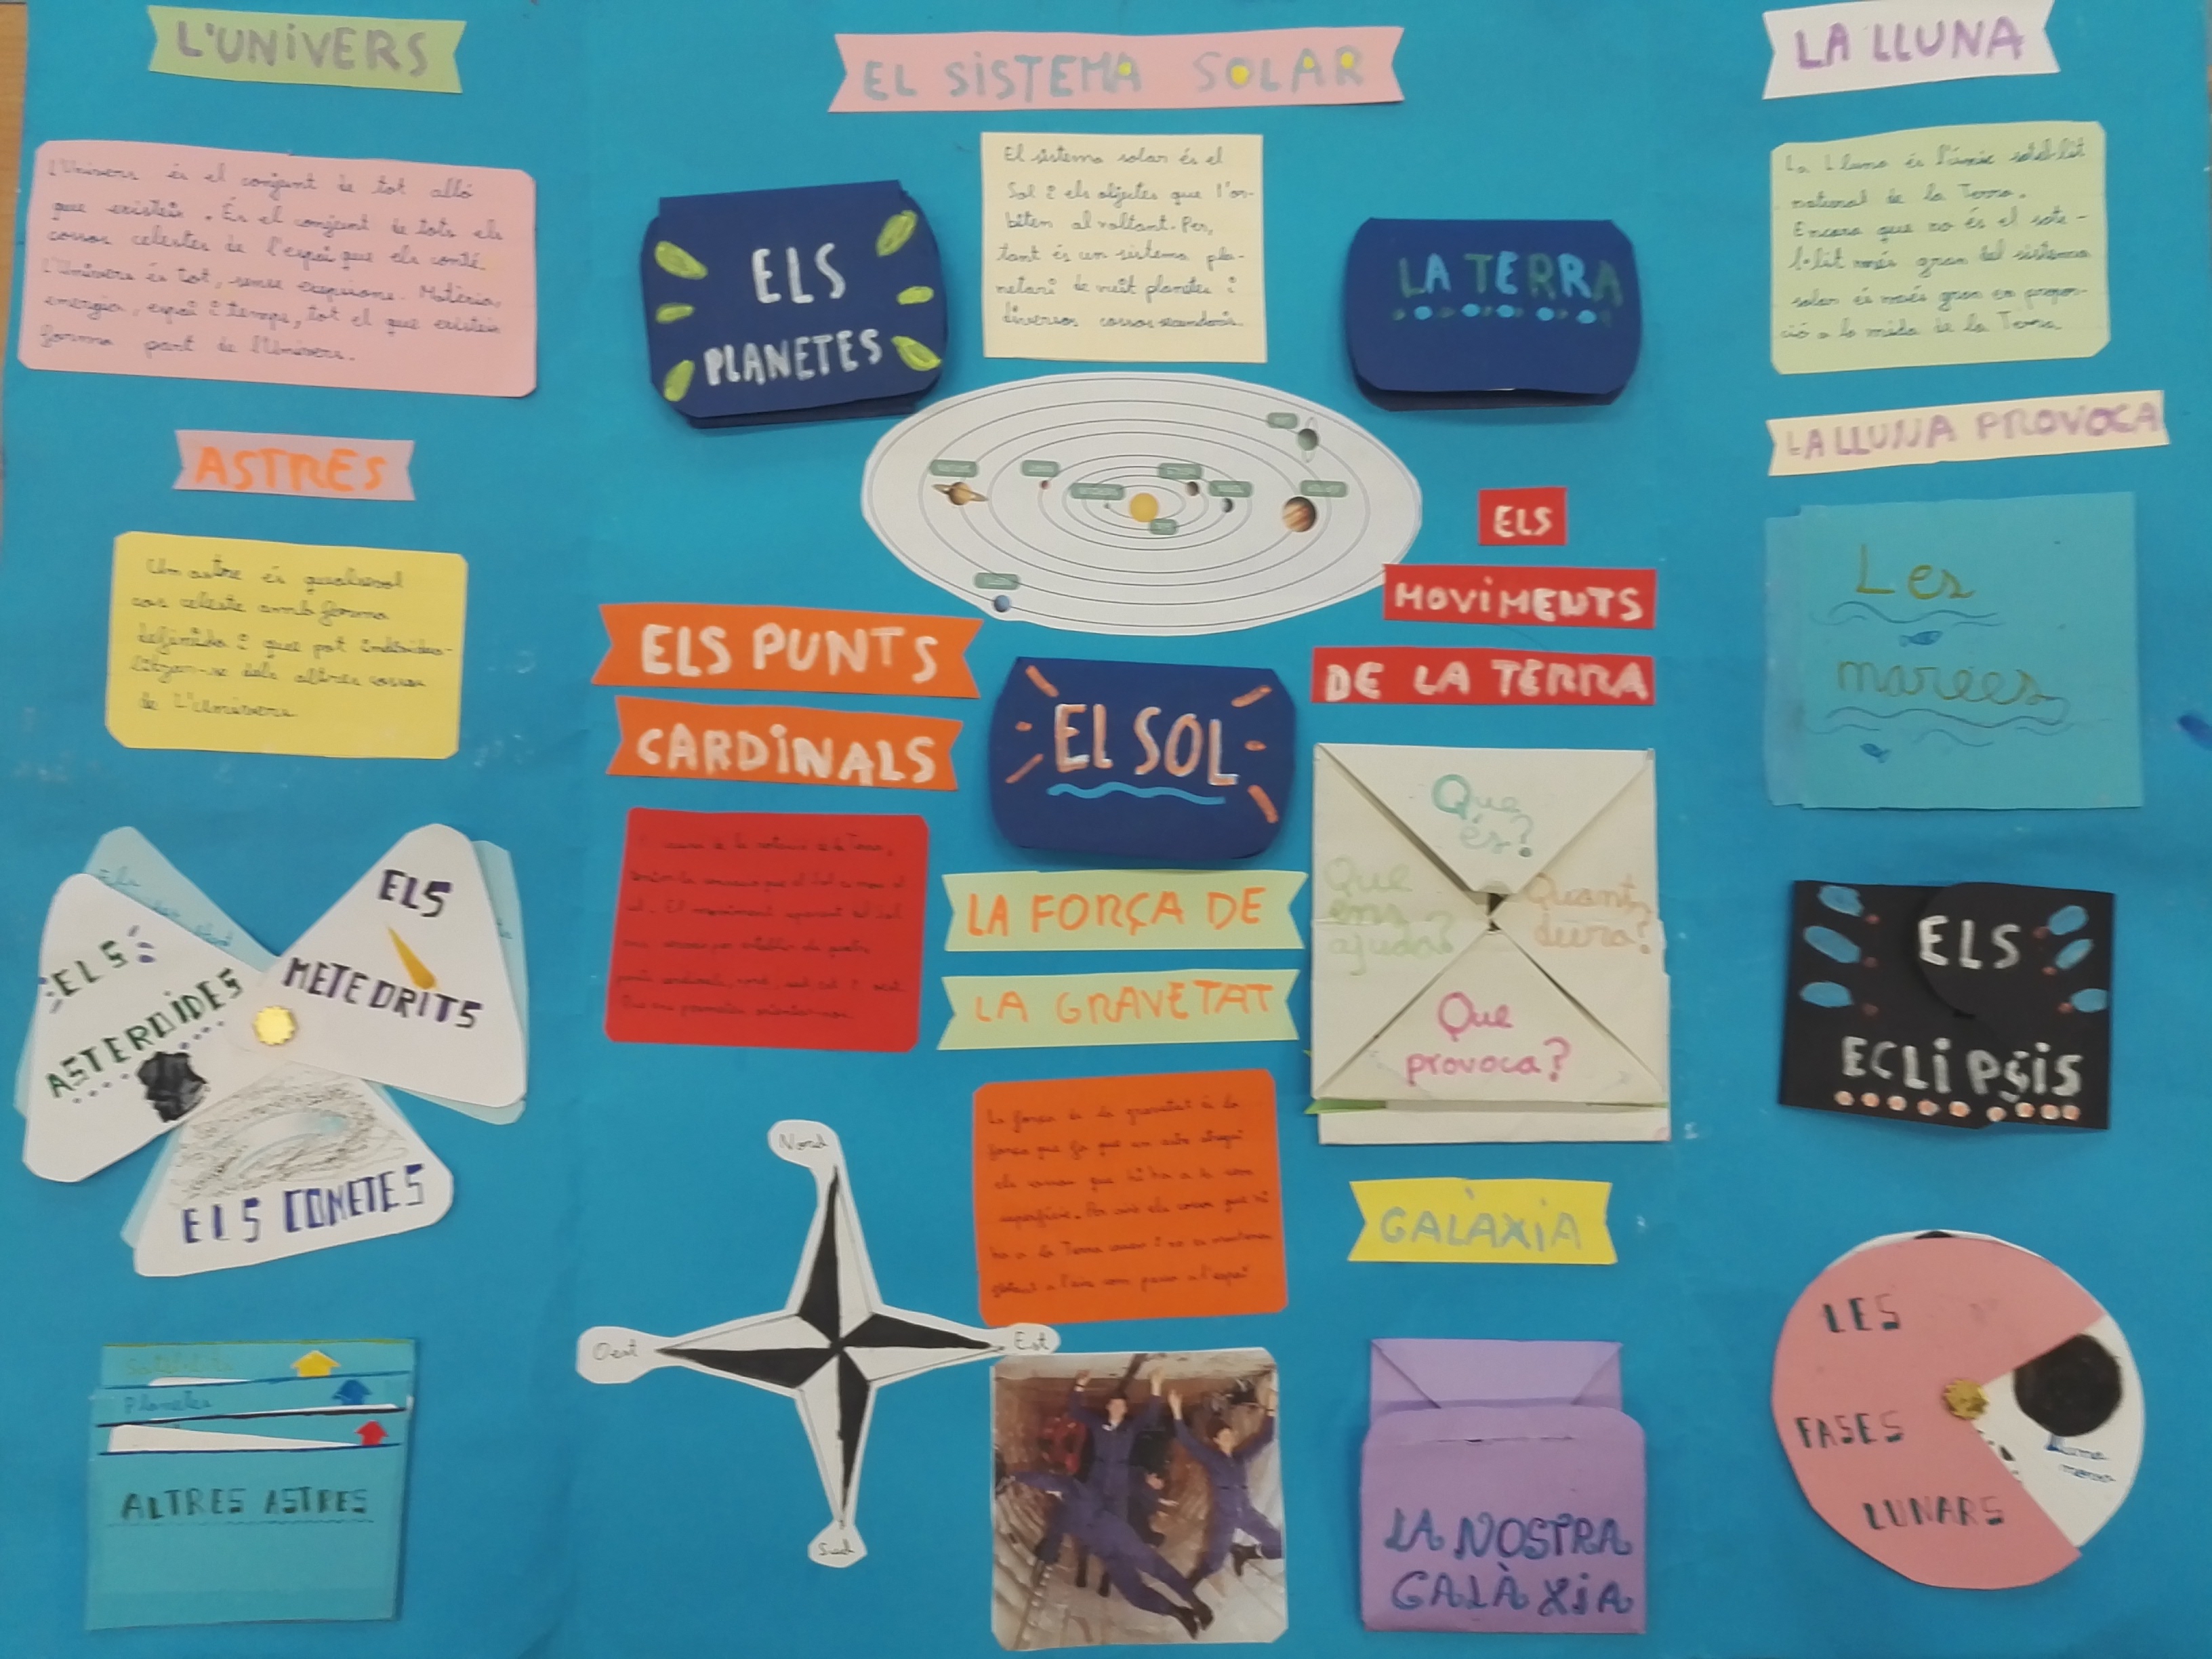 L'UNIVERS
L'Univers és el conjunt de tot allò
que existeix. És el conjunt de tots els
cossos celestes de l'espai que els conté.
L'Univers és tot, sense excepcions. Matèria,
energia, espai i temps, tot el que existeix
forma part de l'Univers.
ASTRES
Un astre és qualsevol
cos celeste amb forma
definida i que pot individua-
litzar-se dels altres cossos
de L'Univers.
ELS
ASTEROIDES
ELS
METEORITS
ELS COMETES
Satèl·lits
Planetes
ALTRES ASTRES
EL SISTEMA SOLAR
El sistema solar és el
Sol i els objectes que l'or-
biten al voltant. Per,
tant és un sistema pla-
netari de vuit planetes i
diversos cossos secundaris.
ELS
PLANETES
LA TERRA
ELS PUNTS
CARDINALS
causa de la rotació de la Terra,
que el Sol
El moviment aparent del Sol
ens
punts cardinals, nord, sud, est i oest.
Que ens permeten orientar-nos.
Nord
Oest
Est
Sud
EL SOL
LA FORÇA DE
LA GRAVETAT
La força de la gravetat és la
força que fa que un astre atregui
els cossos que hi ha a la seva
superfície. Per això els cossos que hi
ha a la Terra cauen i no es mantenen
flotant a l'aire com passa a l'espai
ELS
MOVIMENTS
DE LA TERRA
Que
és?
Que
ens
ajuda?
Quant
dura?
Que
provoca?
GALÀXIA
LA NOSTRA
GALÀXIA
LA LLUNA
La Lluna és l'únic satèl·lit
natural de la Terra.
Encara que no és el satè-
l·lit més gran del sistema
solar és més gran en propor-
ció a la mida de la Terra.
LA LLUNA PROVOCA
Les
marees
ELS
ECLIPSIS
LES
FASES
LUNARS
Lluna
nova